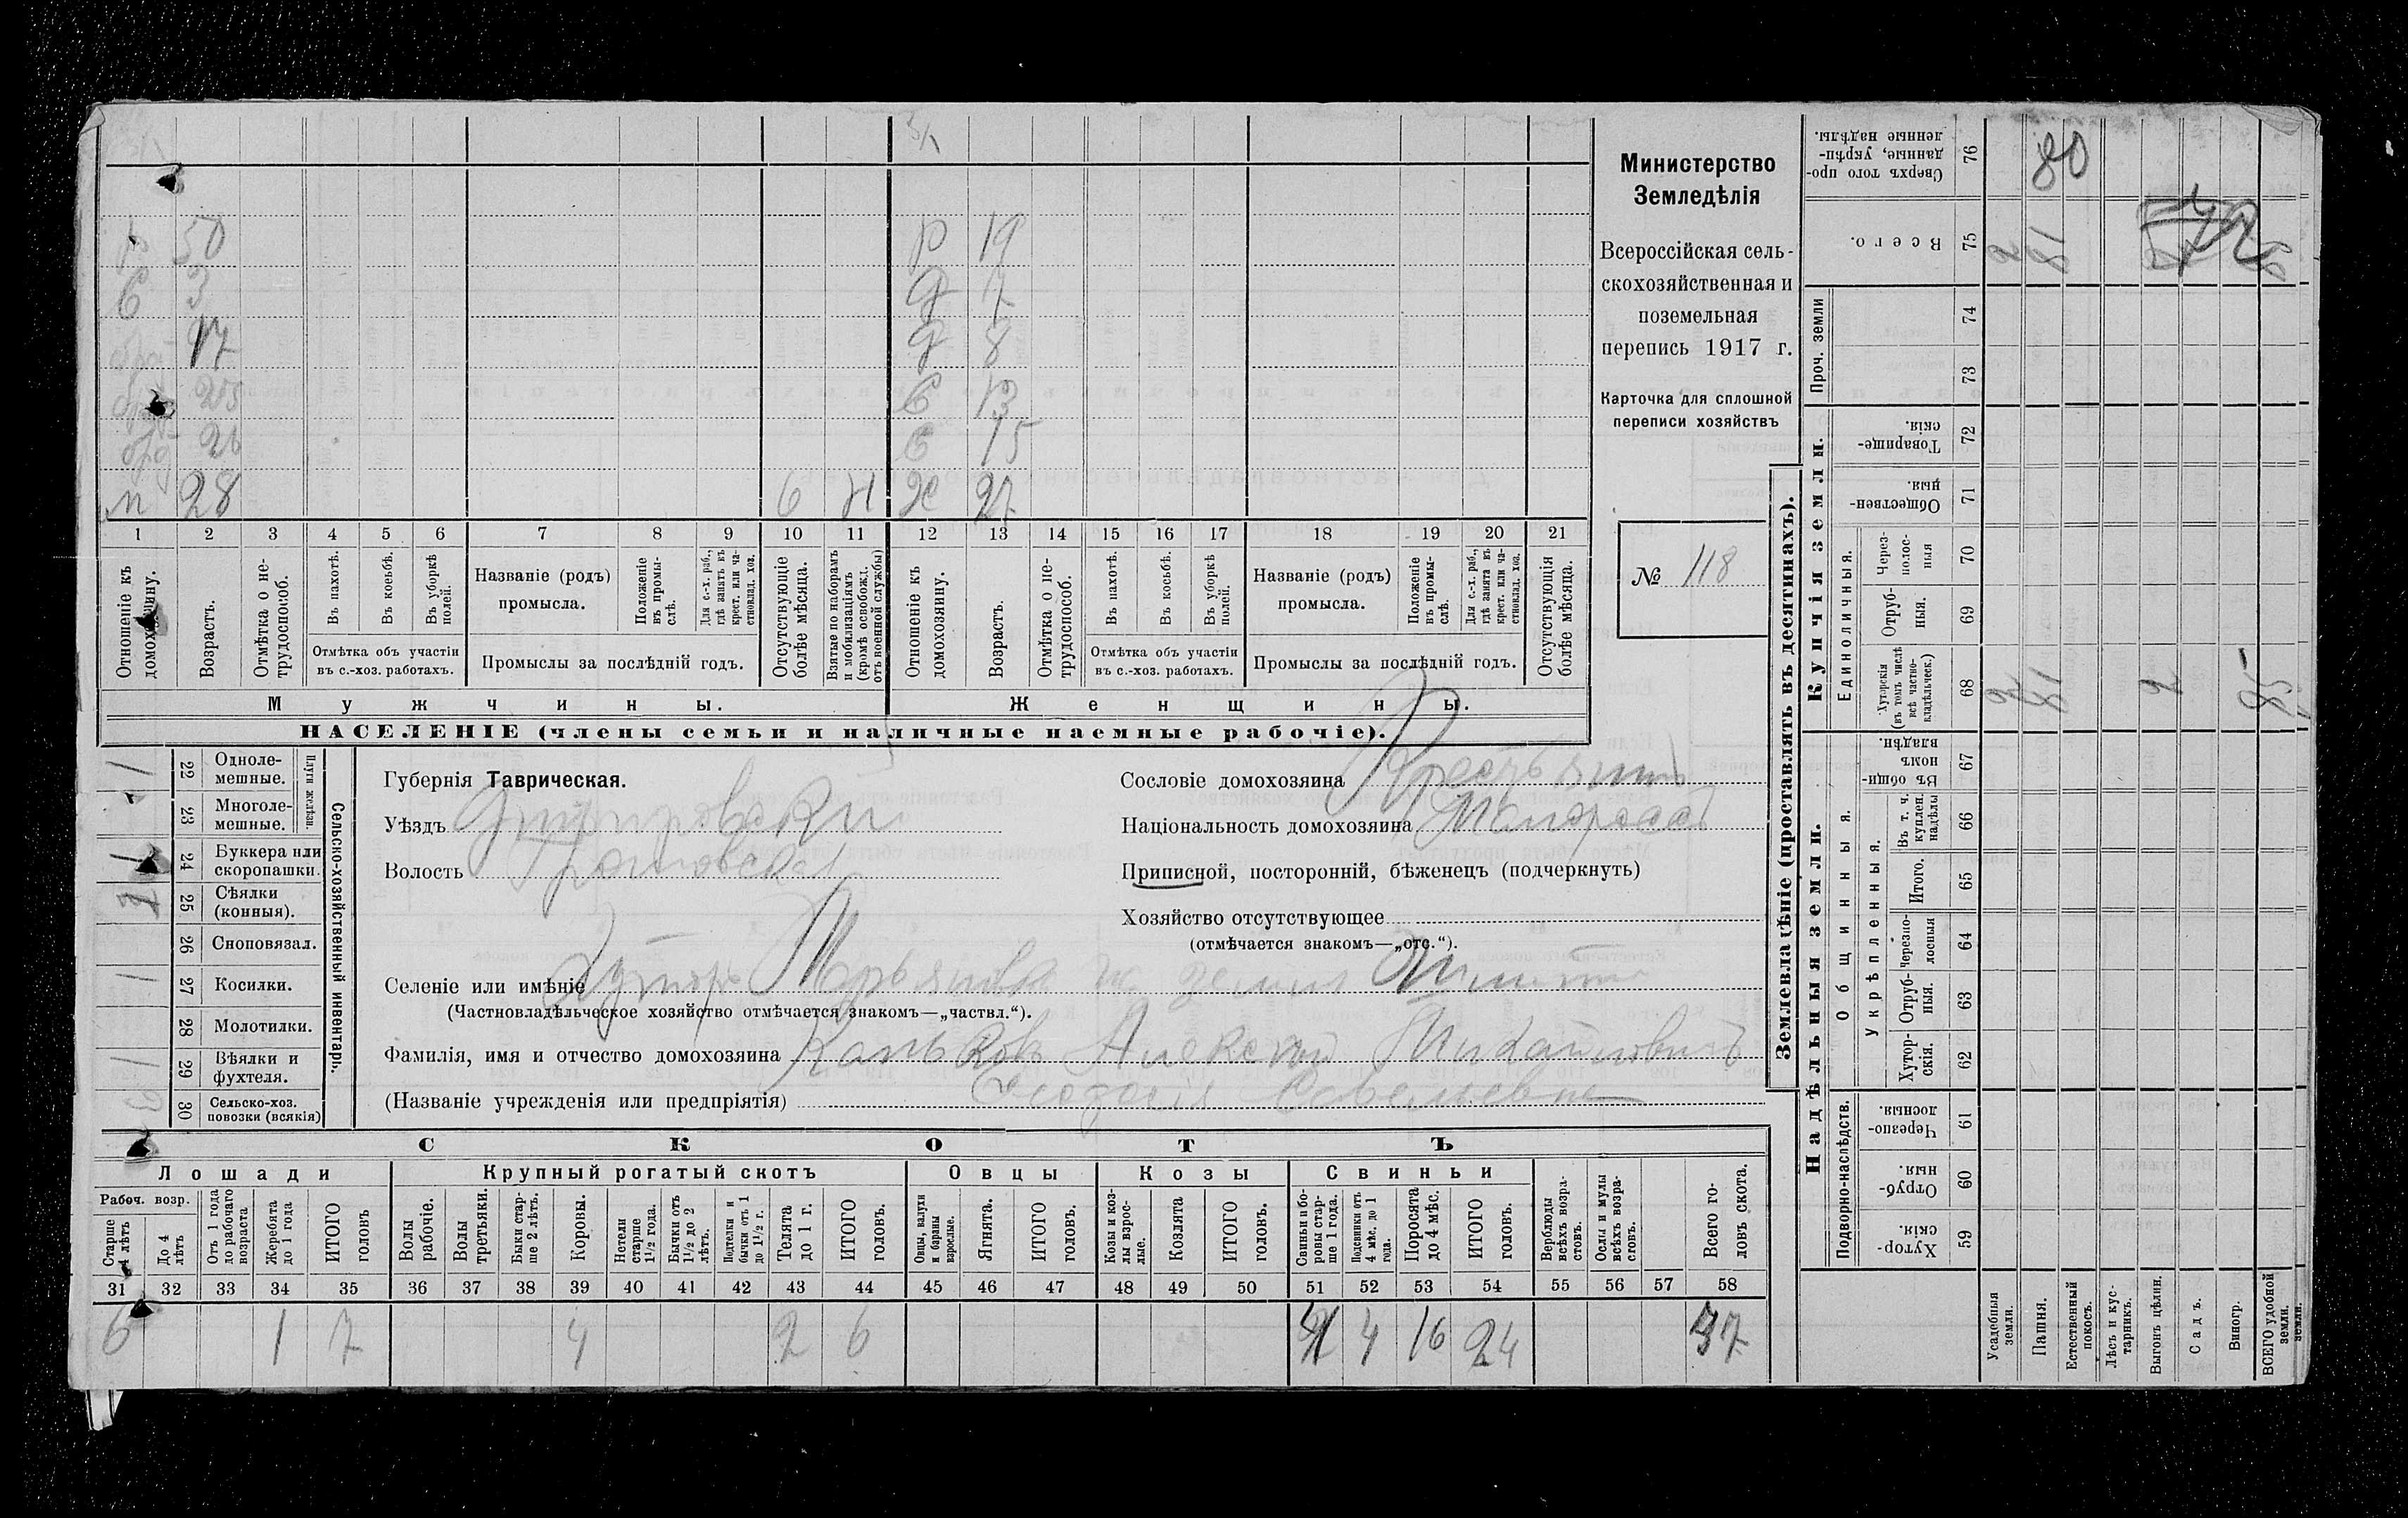 Министерство
Земледѣлія
Всероссійская сель-
скохозяйственная и
поземельная
перепись 1917 г.
Карточка для сплошной
переписи хозяйствъ
№ 118
р 50 р 19
с 3 д 7
17 д 8
25 с 13
26 с 15
28 27
1 2 3 4 5 6 7 8 9 10 11 12 13 14 15 16 17 18 19 20 21
Отношеніе къ домохозяину.
Возрастъ.
Отмѣтка о не-трудоспособ.
Въ пахотѣ.
Въ косьбѣ.
Въ уборкѣ полей.
Отмѣтка объ участіи
въ с.-хоз. работахъ.
Названіе (родъ)
промысла.
Положеніе въ промы-слѣ.
Для с.-х. раб., гдѣ занятъ въ крест. или ча-стновлад. хоз.
Промыслы за послѣдній годъ.
Отсутствующіе болѣе мѣсяца.
Взятые по наборамъ и мобилизаціямъ (кромѣ освобожд. отъ военной службы)
Отношеніе къ домохозяину.
Возрастъ.
Отмѣтка о не-трудоспособ.
Въ пахотѣ.
Въ косьбѣ.
Въ уборкѣ полей.
Отмѣтка объ участіи
въ с.-хоз. работахъ.
Названіе (родъ)
промысла.
Положеніе въ промы-слѣ.
Для с.-х. раб., гдѣ занята въ крест. или ча-стновлад. хоз.
Промыслы за послѣдній годъ.
Отсутствующія болѣе мѣсяца.
Мужчины.
Женщины.
НАСЕЛЕНІЕ (члены семьи и наличные наемные рабочіе).
Сельско-хозяйственный инвентарь.
Плуги желѣзн
22 Одноле-мешные. 1
23 Многоле-мешные.
24 Буккера или скоропашки. 1
25 Сѣялки (конныя). 1
26 Сноповязал.
27 Косилки. 1
28 Молотилки.
29 Вѣялки и фухтеля. 1
30 Сельско-хоз. повозки (всякія)
Губернія Таврическая.
Уѣздъ
Волость
Селеніе или имѣніе Хуторъ
(Частновладѣльческое хозяйство отмѣчается знакомъ—„частвл.“).
Фамилія, имя и отчество домохозяина Алексѣй Михайловичъ
(Названіе учрежденія или предпріятія)
Сословіе домохозяина Крестьянинъ
Національность домохозяина Малороссъ
Приписной, посторонній, бѣженецъ (подчеркнуть)
Хозяйство отсутствующее
(отмѣчается знакомъ—„отс.“).
СКОТЪ
Лошади
Крупный рогатый скотъ
Овцы
Козы
Свиньи
Рабоч. возр.
Старше 4 лѣтъ
До 4 лѣтъ
Отъ 1 года до рабочаго возраста
Жеребята до 1 года
ИТОГО головъ
Волы рабочіе.
Волы третьяки.
Быки стар-ше 2 лѣтъ.
Коровы.
Нетели старше 1½ года.
Бычки отъ 1½ до 2 лѣтъ.
Подтелки и бычки отъ 1 до 1½ г.
Телята до 1 г.
ИТОГО головъ.
Овцы, валухи и бараны взрослые.
Ягнята.
ИТОГО головъ.
Козы и коз-лы взрос-лые.
Козлята
ИТОГО головъ.
Свиньи и бо-ровы стар-ше 1 года.
Подсвинки отъ 4 мѣс. до 1 года.
Поросята до 4 мѣс.
ИТОГО головъ.
Верблюды всѣхъ возра-стовъ.
Ослы и мулы всѣхъ возра-стовъ.
Всего го-ловъ скота.
31 32 33 34 35 36 37 38 39 40 41 42 43 44 45 46 47 48 49 50 51 52 53 54 55 56 57 58
6 1 7 4 2 6 4 16 24 37
Землевладѣніе (проставлять въ десятинахъ).
Купчія земли.
Надѣльныя земли.
Проч. земли
Единоличныя.
Общинныя.
Укрѣпленныя.
Подворно-наслѣдств.
76 Сверхъ того про-данные, укрѣп-ленные надѣлы. 80
75 Всего.
74
73
72 Товарище-скія.
71 Обществен-ныя.
70 Через-полос-ныя
69 Отруб-ныя.
68 Хуторскія (въ томъ числѣ всѣ частно-владѣльческ.)
67 Въ общин-номъ владѣн.
66 Въ т. ч. куплен. надѣлы
65 Итого.
64 Черезпо-лосныя
63 Отруб-ныя.
62 Хутор-скія.
61 Черезпо-лосныя.
60 Отруб-ныя.
59 Хутор-скія.
Усадебныя земли.
Пашня.
Естественный покосъ.
Лѣсъ и кус-тарникъ.
Выгонъ цѣлин.
Садъ.
Виногр.
ВСЕГО удобной земли.